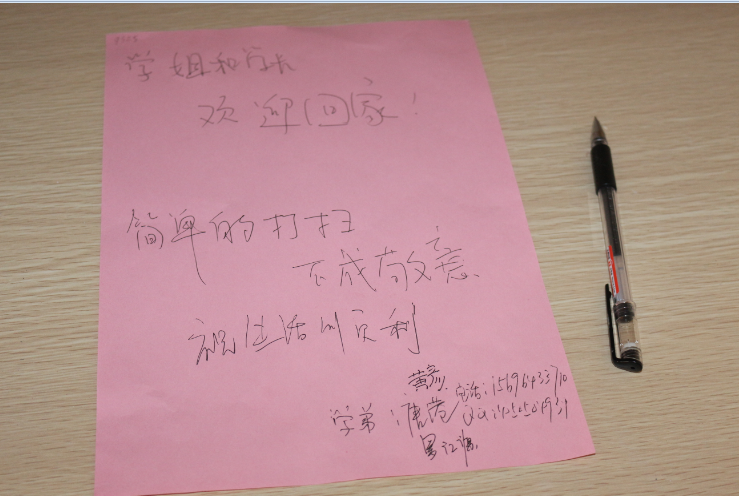 学姐和学长
欢迎回家!
简单的打扫
不成敬意
祝生活顺利
黄
学弟:唐
电话:15696433710
QQ: